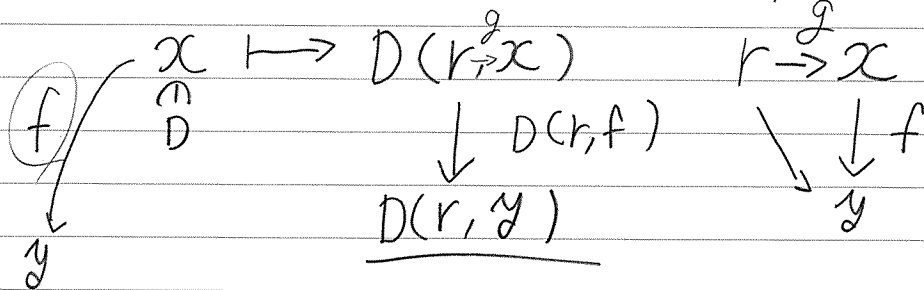 x ↦ D(r →g x) r →g x
f ∈ D ↓ D(r,f) ↘ ↓ f
y D(r, y) y